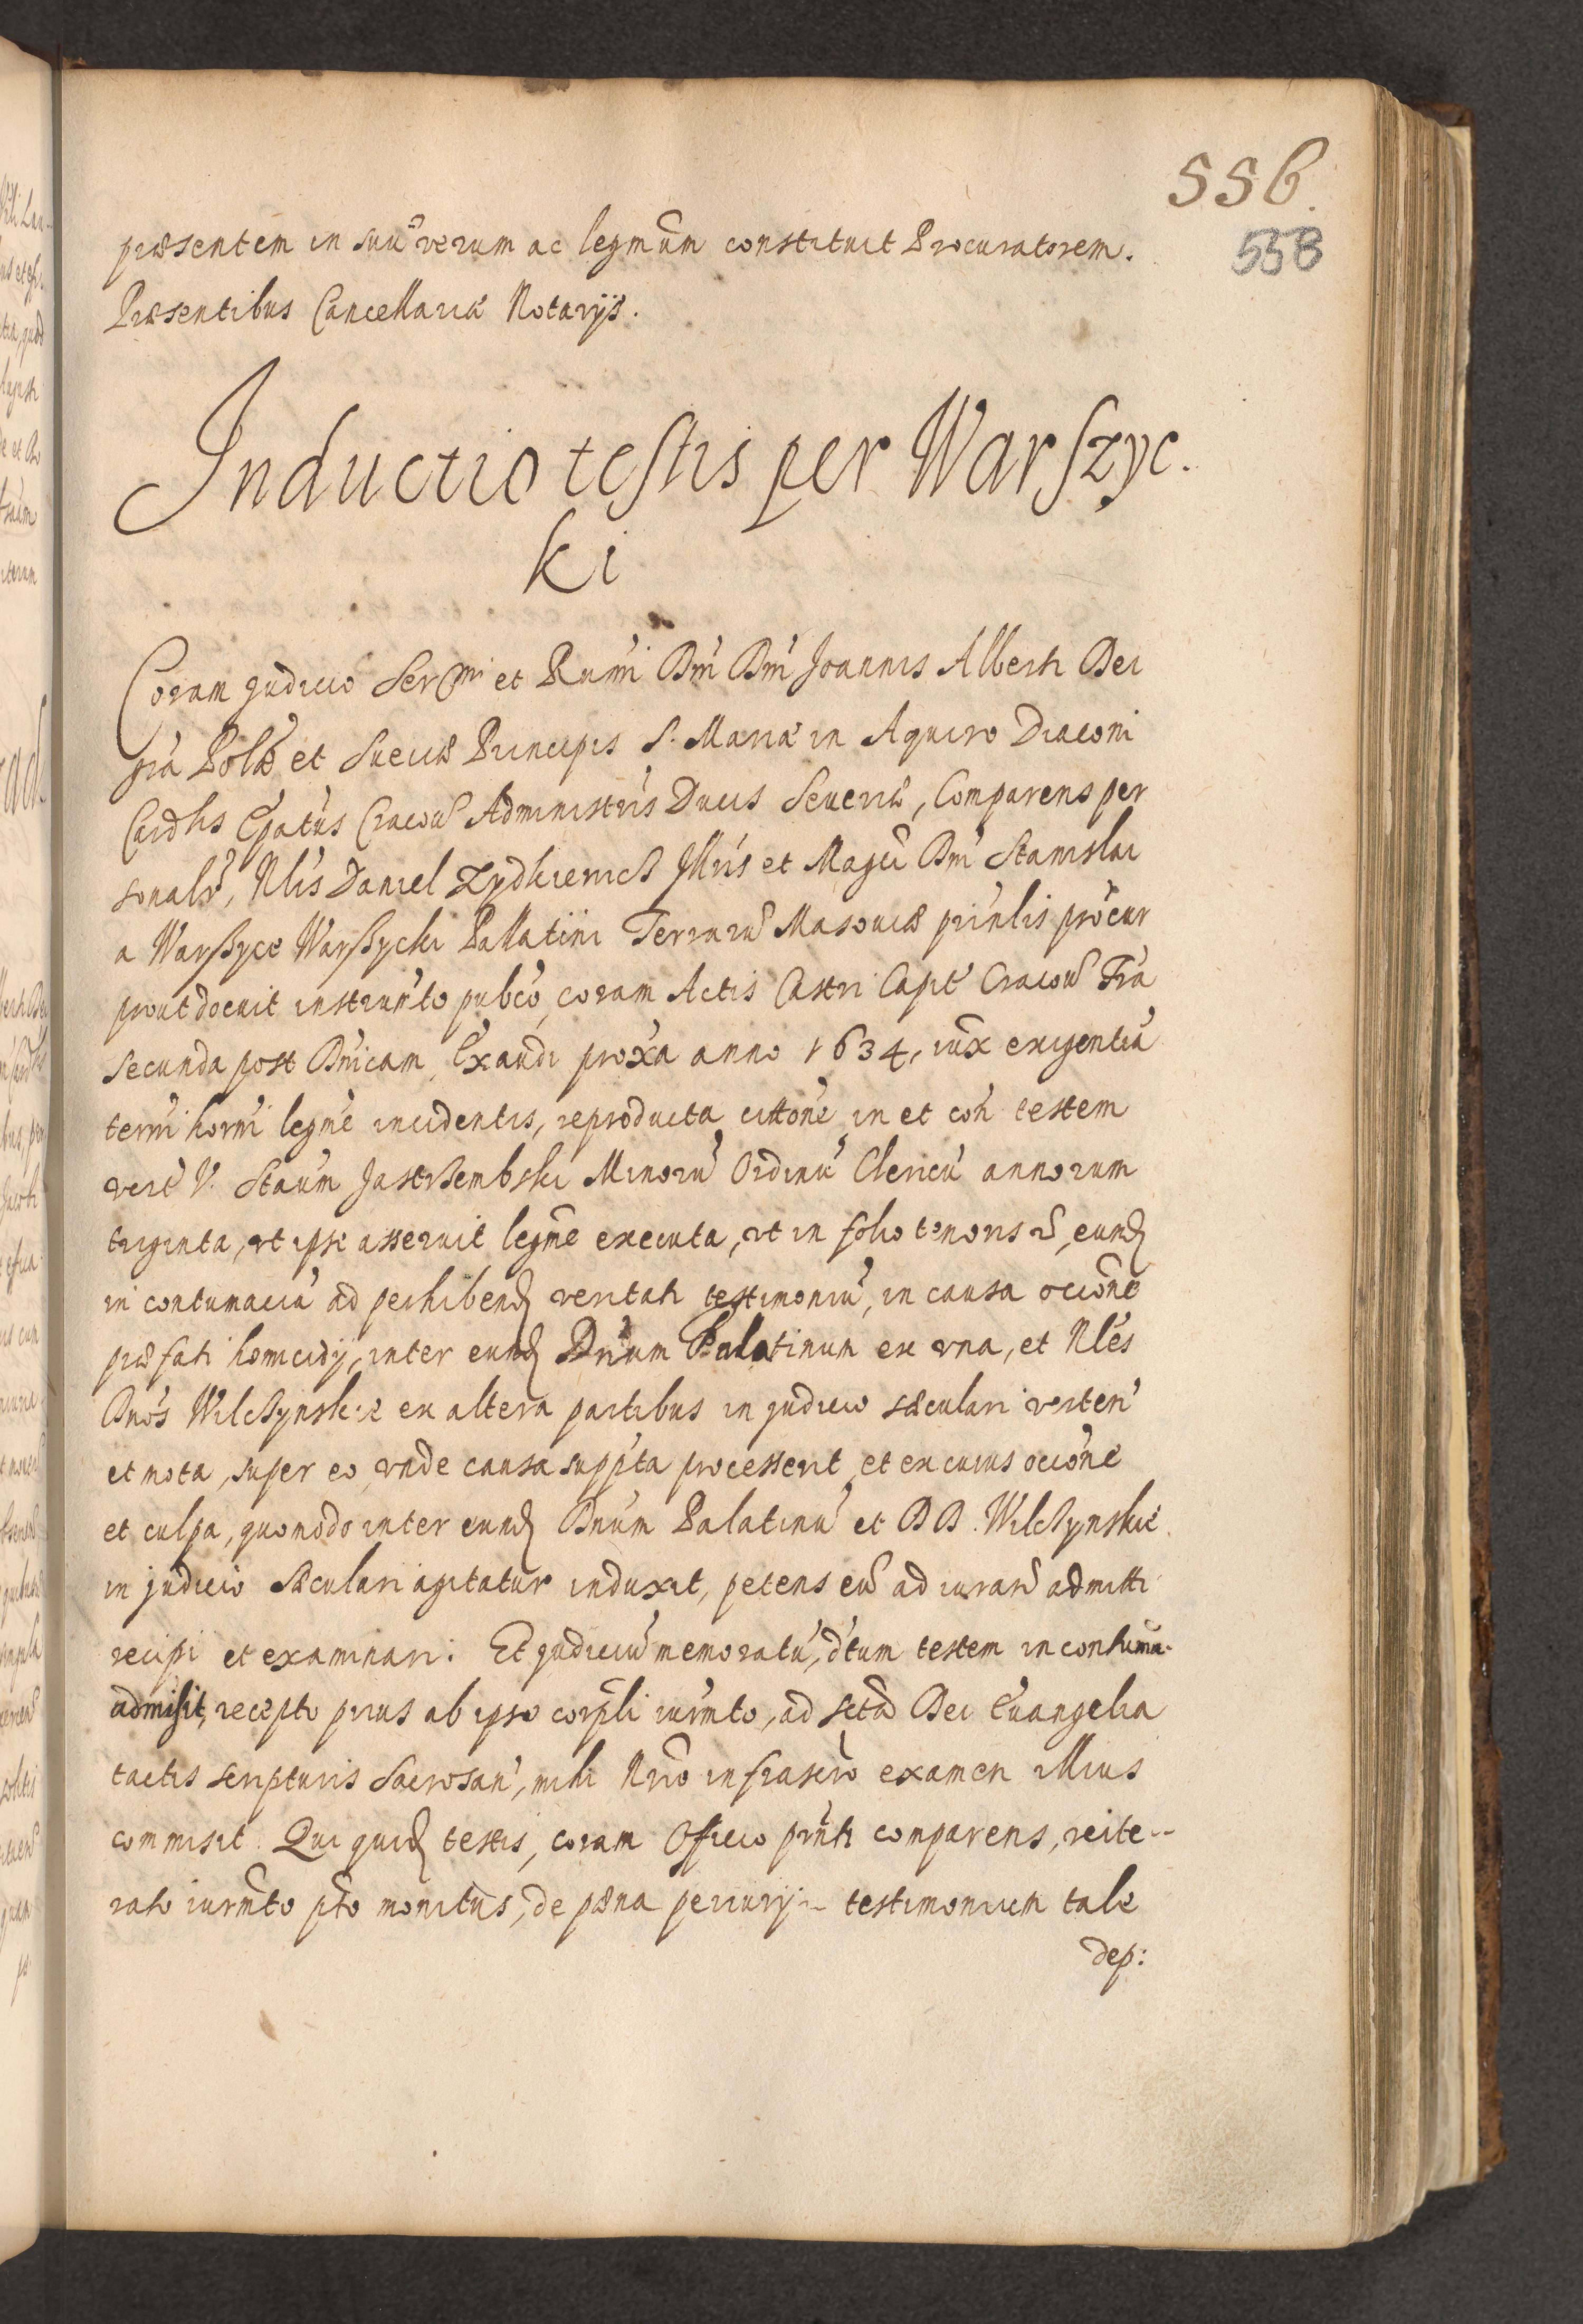 556.
558
præsentem in suũ verum ac legmũm constituit Procuratorem.
Præsentibus Cancellariæ Notarijs.
Inductio testis per Warszyc.
ki
Coram Judicio Sermi et Rumi Dni Dni Joannis Alberti Dei
gra Polæ et Sueciæ Principis S. Mariæ in Aquiro Diaconi
Cardlis Epatus Cracou Administris Ducis Seueriæ, Comparens per
sonalr, Nlis Daniel Zydkiewicß Jllris et Magci Dni Stanislai
a Warßyce Warßycki Pallatini Terraru Masouiæ prinlis procur
prout docuit instrumto publco, coram Actis Castri Capit Cracou Fra
secunda post Dnicam Exaudi proxa anno 1634, iux exigentia
termi horni legme incidentis, reproducta cittone in et con testem
Stanum Jastrßembski Minoru Ordinu Clericu annorum
triginta, vt ipse asseruit legme executa, vt in folio tenoris eund
in contumacia ad perhibend veritati testimoniu, in causa occione
præfati homicidij, inter eund Dnum Palatinum ex vna, et Nles
Dnos Wilcßynskie ex altera partibus in Judicio sæculari verten
et mota, super eo, vnde causa suppta processerit et ex cuius occione
et culpa, quomodo inter eund Dnum Palatinu et DD. Wilcßynskie
in judicio Sæculari agitatur induxit, petens eu ad iurand admitti
recipi et examinari. Et Judiciu memoratu, dtum testem in contuma.
admisit, recepto prius ab ipso corpli iurmto, ad Scta Dei Euangelia
tactis scripturis Sacrosan, mihi Nrio infrascro examen illius
commisit. Qui quid testis, coram Officio prnti comparens, reite-
rato iurmto pto monitus, de pæna periurij testimonium tale
dep: